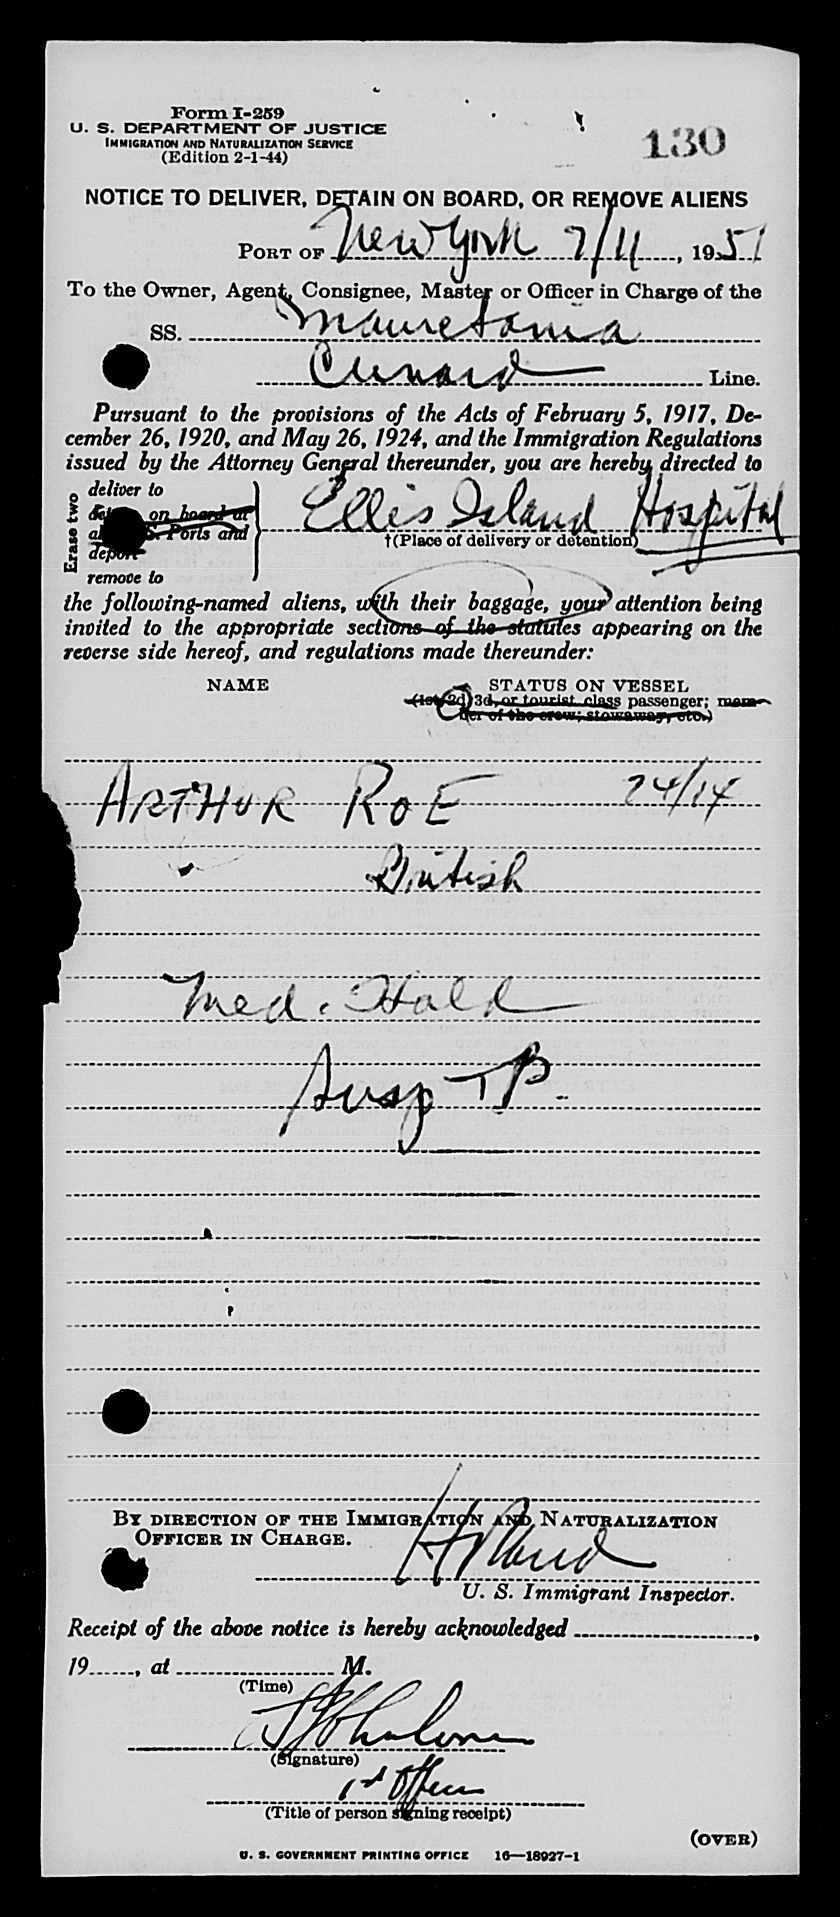 Form I-259
U. S. DEPARTMENT OF JUSTICE
IMMIGRATION AND NATURALIZATION SERVICE
(Edition 2-1-44)
130
NOTICE TO DELIVER, DETAIN ON BOARD, OR REMOVE ALIENS
PORT OF New York 7/11, 1951
To the Owner, Agent, Consignee, Master or Officer in Charge of the
SS. Mauretania
Cunard Line.
Pursuant to the provisions of the Acts of February 5, 1917, De-
cember 26, 1920, and May 26, 1924, and the Immigration Regulations
issued by the Attorney General thereunder, you are hereby directed to
Erase two
deliver to
on board at
S. Ports and
deport
remove to
Ellis Island Hospital
†(Place of delivery or detention)
the following-named aliens, with their baggage, your attention being
invited to the appropriate sections of the statutes appearing on the
reverse side hereof, and regulations made thereunder:
NAME STATUS ON VESSEL
(1st, 2d, 3d, or tourist class passenger; mem-
ber of the crew; stowaway, etc.)
ARTHUR ROE 24/14
British
Med. Hold
Susp TB.
BY DIRECTION OF THE IMMIGRATION AND NATURALIZATION
OFFICER IN CHARGE.
U. S. Immigrant Inspector.
Receipt of the above notice is hereby acknowledged ,
19 , at M.
(Time)
(Signature)
1st Officer
(Title of person signing receipt)
(OVER)
U. S. GOVERNMENT PRINTING OFFICE 16—18927-1